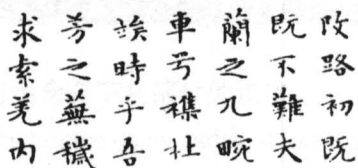 改路初既
既不難夫
蘭之九畹
車兮襍杜
竢時乎吾
芳之蕪穢
求索羌內